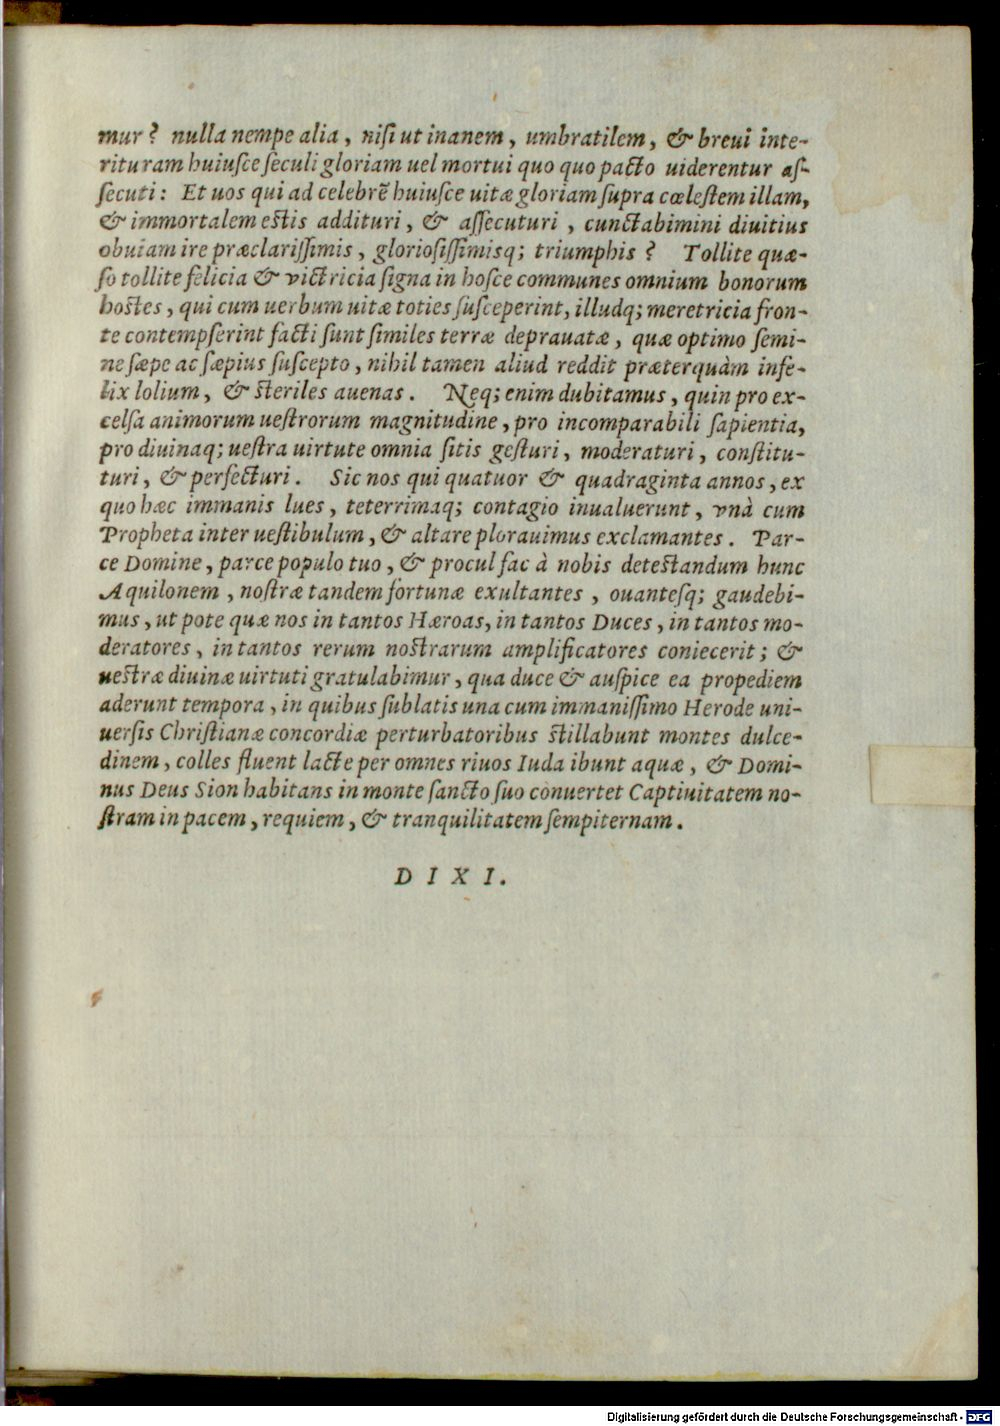 mur? nulla nempe alia, nisi ut inanem, umbratilem, & breui inte-
rituram huiusce seculi gloriam uel mortui quo quo pacto uiderentur as-
secuti: Et uos qui ad celebrẽ huiusce uitæ gloriam supra cœlestem illam,
& immortalem estis addituri, & assecuturi, cunctabimini diuitius
obuiam ire præclarissimis, gloriosissimisq; triumphis? Tollite quæ-
so tollite felicia & victricia signa in hosce communes omnium bonorum
hostes, qui cum uerbum uitæ toties susceperint, illudq; meretricia fron-
te contempserint facti sunt similes terræ deprauatæ, quæ optimo semi-
ne sæpe ac sæpius suscepto, nihil tamen aliud reddit præterquàm infe-
lix lolium, & steriles auenas. Neq; enim dubitamus, quin pro ex-
celsa animorum uestrorum magnitudine, pro incomparabili sapientia,
pro diuinaq; uestra uirtute omnia sitis gesturi, moderaturi, constitu-
turi, & perfecturi. Sic nos qui quatuor & quadraginta annos, ex
quo hæc immanis lues, teterrimaq; contagio inualuerunt, vnà cum
Propheta inter uestibulum, & altare plorauimus exclamantes. Par-
ce Domine, parce populo tuo, & procul fac à nobis detestandum hunc
Aquilonem, nostræ tandem fortunæ exultantes, ouantesq; gaudebi-
mus, ut pote quæ nos in tantos Hæroas, in tantos Duces, in tantos mo-
deratores, in tantos rerum nostrarum amplificatores coniecerit; &
uestræ diuinæ uirtuti gratulabimur, qua duce & auspice ea propediem
aderunt tempora, in quibus sublatis una cum immanissimo Herode uni-
uersis Christianæ concordiæ perturbatoribus stillabunt montes dulce-
dinem, colles fluent lacte per omnes riuos Iuda ibunt aquæ, & Domi-
nus Deus Sion habitans in monte sancto suo conuertet Captiuitatem no-
stram in pacem, requiem, & tranquilitatem sempiternam.
D I X I.
Digitalisierung gefördert durch die Deutsche Forschungsgemeinschaft - DFG